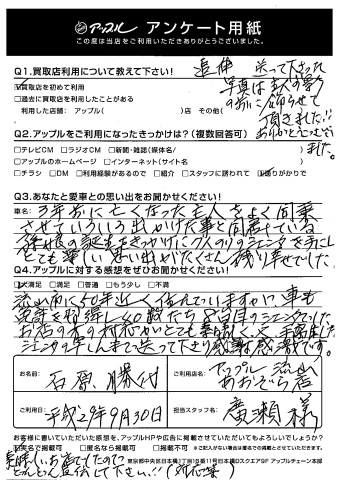 アップル アンケート用紙
この度は当店をご利用いただきありがとうございました。
Q1.買取店利用について教えて下さい!
追伸 送って下さった
写真は主人の
の前に
頂きました!!
ありがとうございました。
買取店を初めて利用
□過去に買取店を利用したことがある
利用した店舗: アップル( )店 その他(
Q2.アップルをご利用になったきっかけは?(複数回答可)
□テレビCM □ラジオCM □新聞・雑誌(媒体名/
□アップルのホームページ □インターネット(サイト名
□チラシ □DM □利用経験があるので □紹介 □スタッフに誘われて 通りがかりで
Q3.あなたと愛車との思い出をお聞かせください!
車名: 3年前に亡くなった主人とよく同乗
させていろいろ出かけた事と同居している
孫娘の誕生をきっかけに7人のりのシエンタを手にし
とても楽しい思い出がたくさん残り幸せでした
Q4.アップルに対する感想をぜひお聞かせください!
大満足 □満足 □普通 □もう少し □不満
流山市に50年近く住んでいますが、車も
免許を取得し40数年 8台目のシエンタでした
お店の方の対応がとても
シエンタの写しんまで送って下さり感謝感激です。
お名前: 石原 勝代
ご利用店名: アップル 流山おおぞら店
ご利用日: 平成29年9月30日
担当スタッフ名: 廣瀬 様
お客様に書いていただいた感想を、アップルHPや広告に掲載させていただいてもよろしいでしょうか?
実名で掲載可 □匿名なら掲載可 □掲載不可 ※ご記入がない場合は匿名での掲載とさせていただきます。
東京都中央区日本橋3丁目12番11号日本橋Dスクエア9F アップルチェーン本部
素晴しいお店でしたので
どんどん宣伝して下さい!!